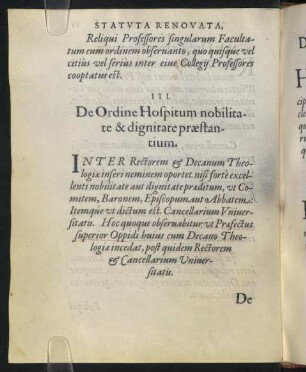 STATVTA RENOVATA,
Reliqui Professores singularum Faculta-
tum eum ordinem obseruanto, quo quisque vel
citius vel serius inter eius Collegij Professores
cooptatus est.
III.
De Ordine Hospitum nobilita-
te & dignitate præstan-
tium.
INTER Rectorem & Decanum Theo-
logiæ inseri neminem oportet nisi fortè excel-
lenti nobilitate aut dignitate præditum, vt Co-
mitem, Baronem, Episcopum aut Abbatem.
Itemque vt dictum est. Cancellarium Vniuer-
sitatis. Hoc quoque obseruabitur, vt Præfectus
superior Oppidi huius cum Decano Theo-
logiæ incedat, post quidem Rectorem
& Cancellarium Vniuer-
sitatis.
De